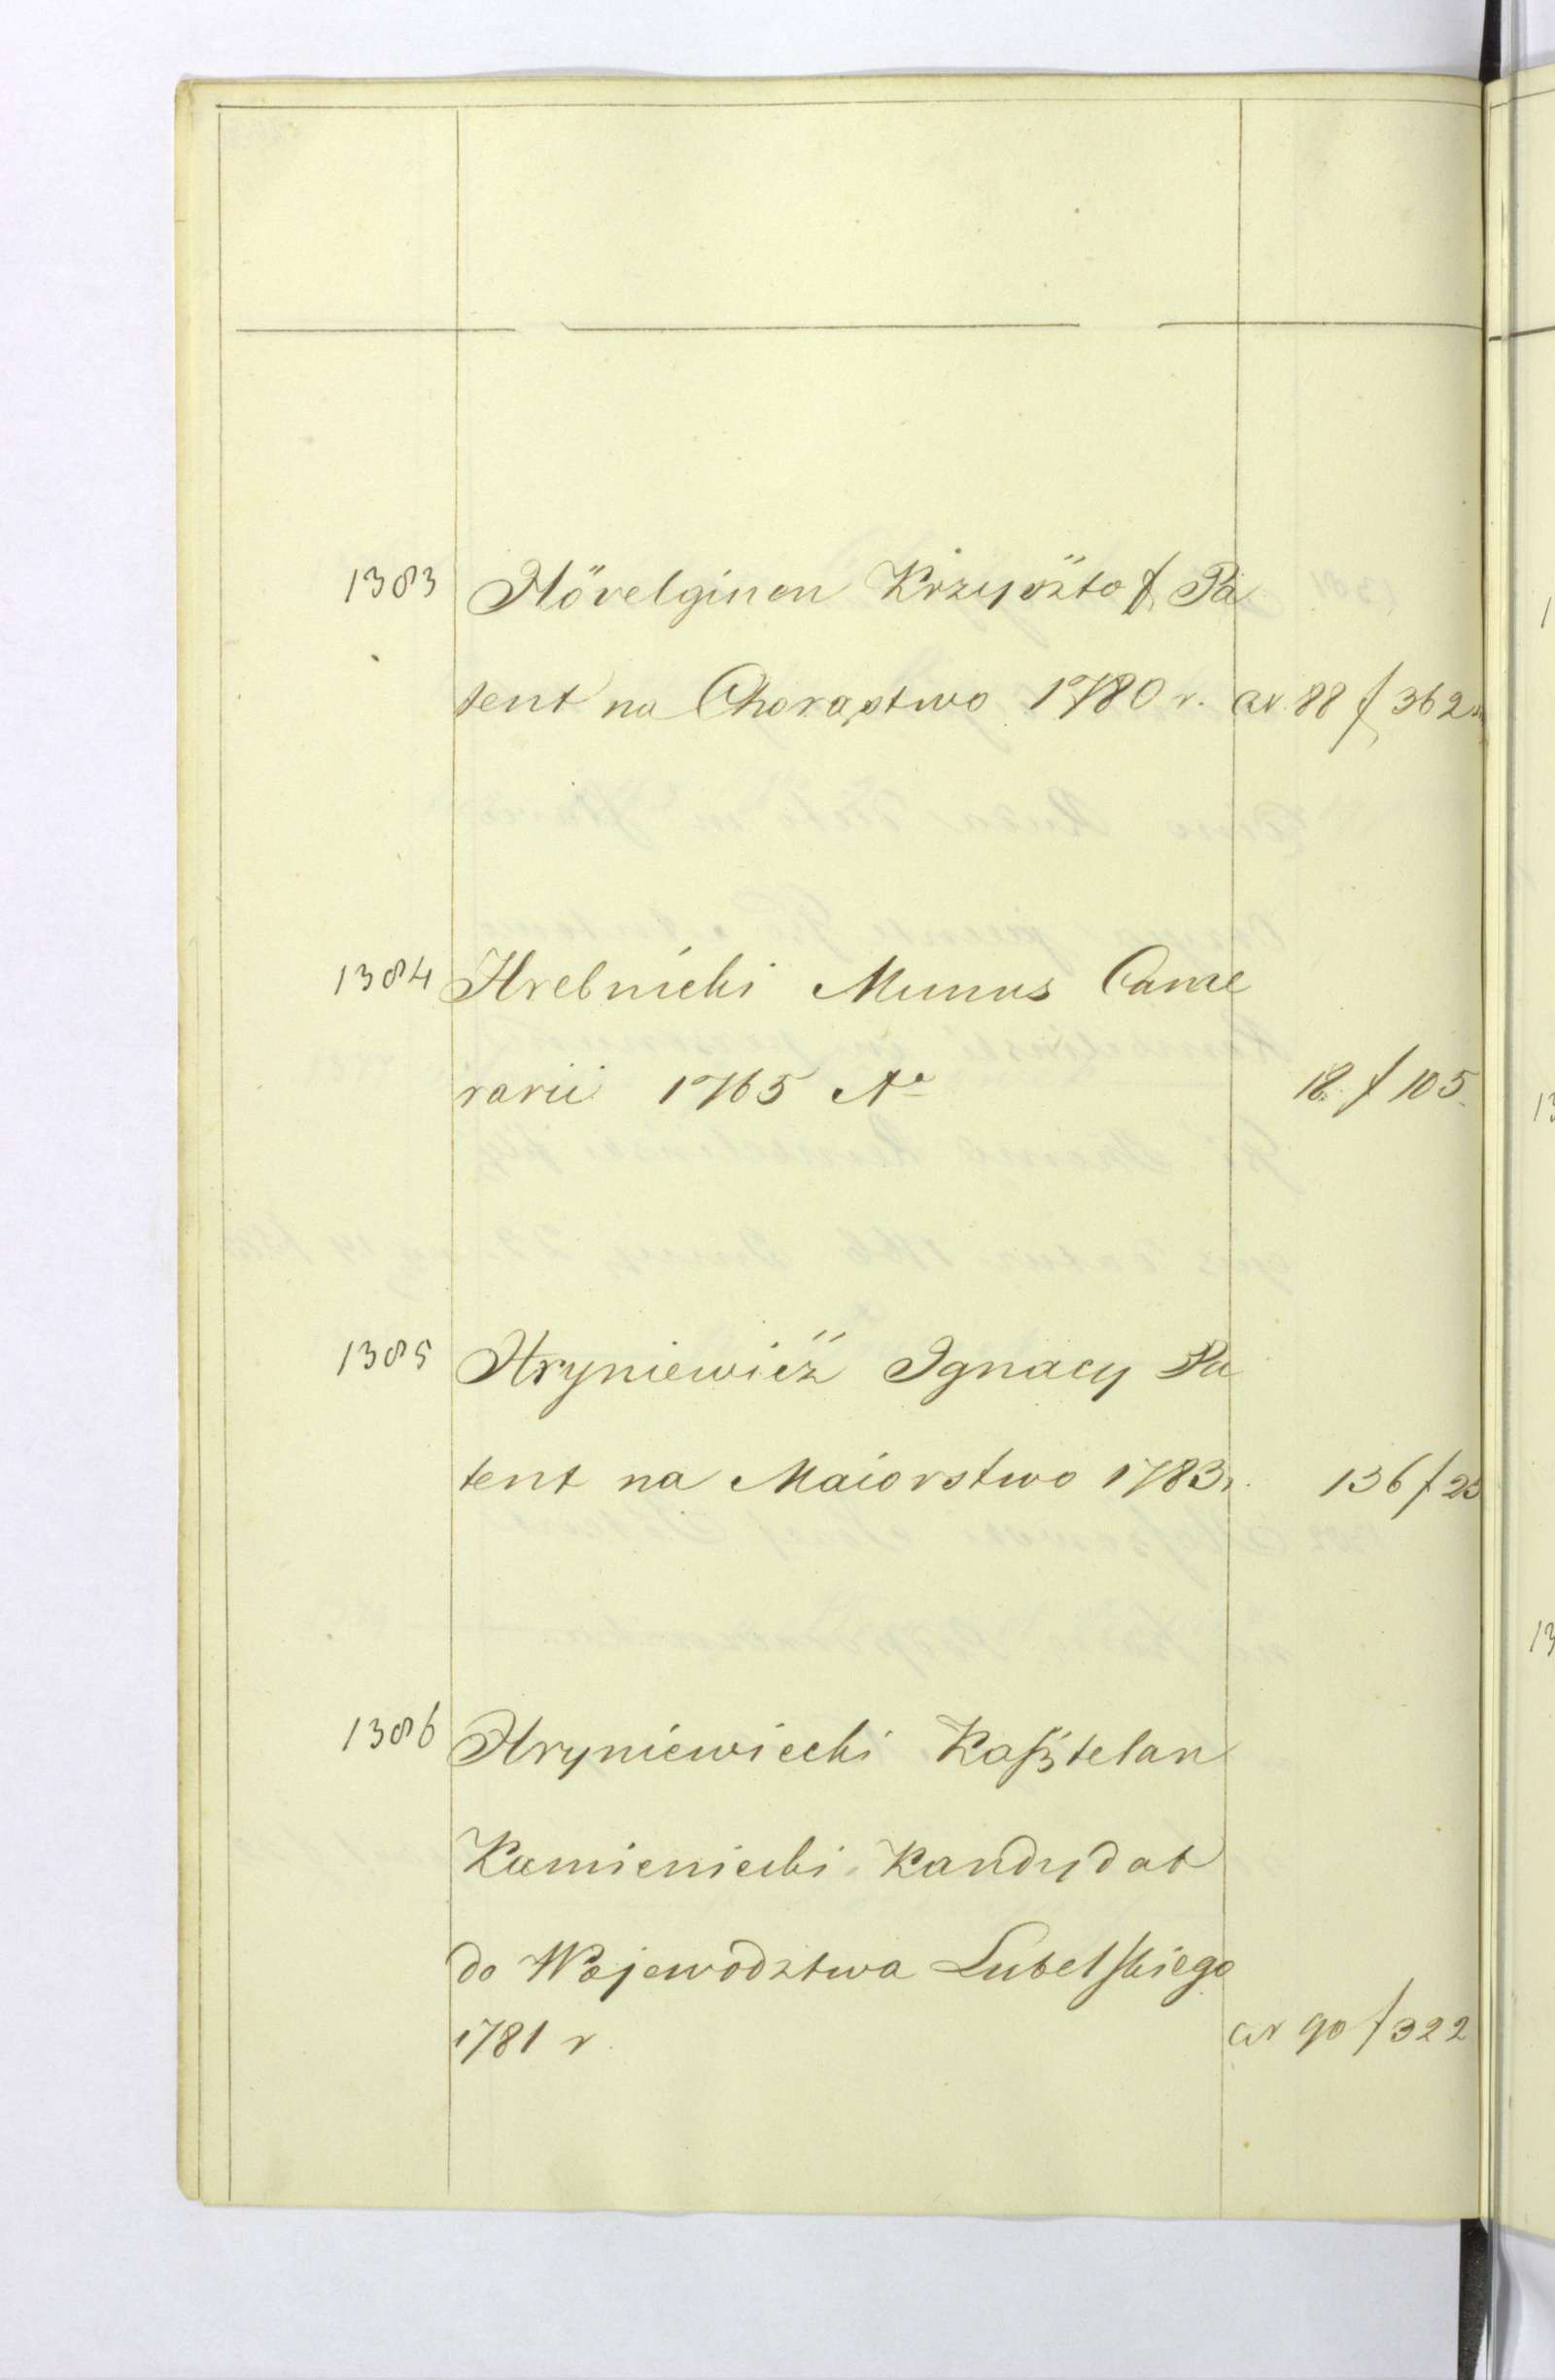 1383 Hövelginen Krzysztof Pa
tent na Chorąstwo 1780 r. av. 88 f 362
1384 Hrebnicki Munus Came
rarii 1765 Ao 18. f 105.
1385 Hryniewicz Ignacy Pa
tent na Maiorstwo 1783 r. 136 f 23
1386 Hryniewiecki Kasztelan
Kamieniecki Kandydat
do Wojewodztwa Lubelskiego
1781 r. av 90 f 322